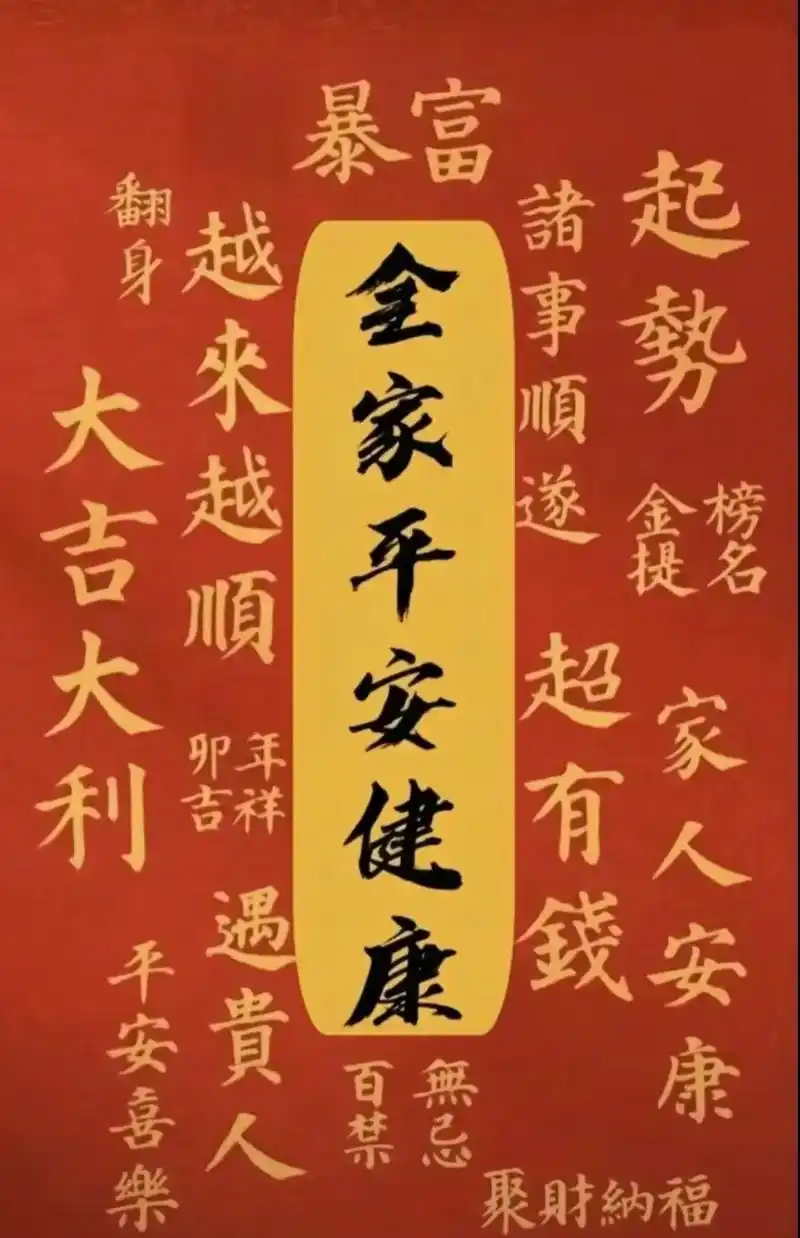 暴富
起勢
諸事順遂
榜名
金提
超有錢
家人安康
全家平安健康
翻身
越來越順
大吉大利
年祥
卯吉
遇貴人
平安喜樂
無忌
百禁
聚財納福